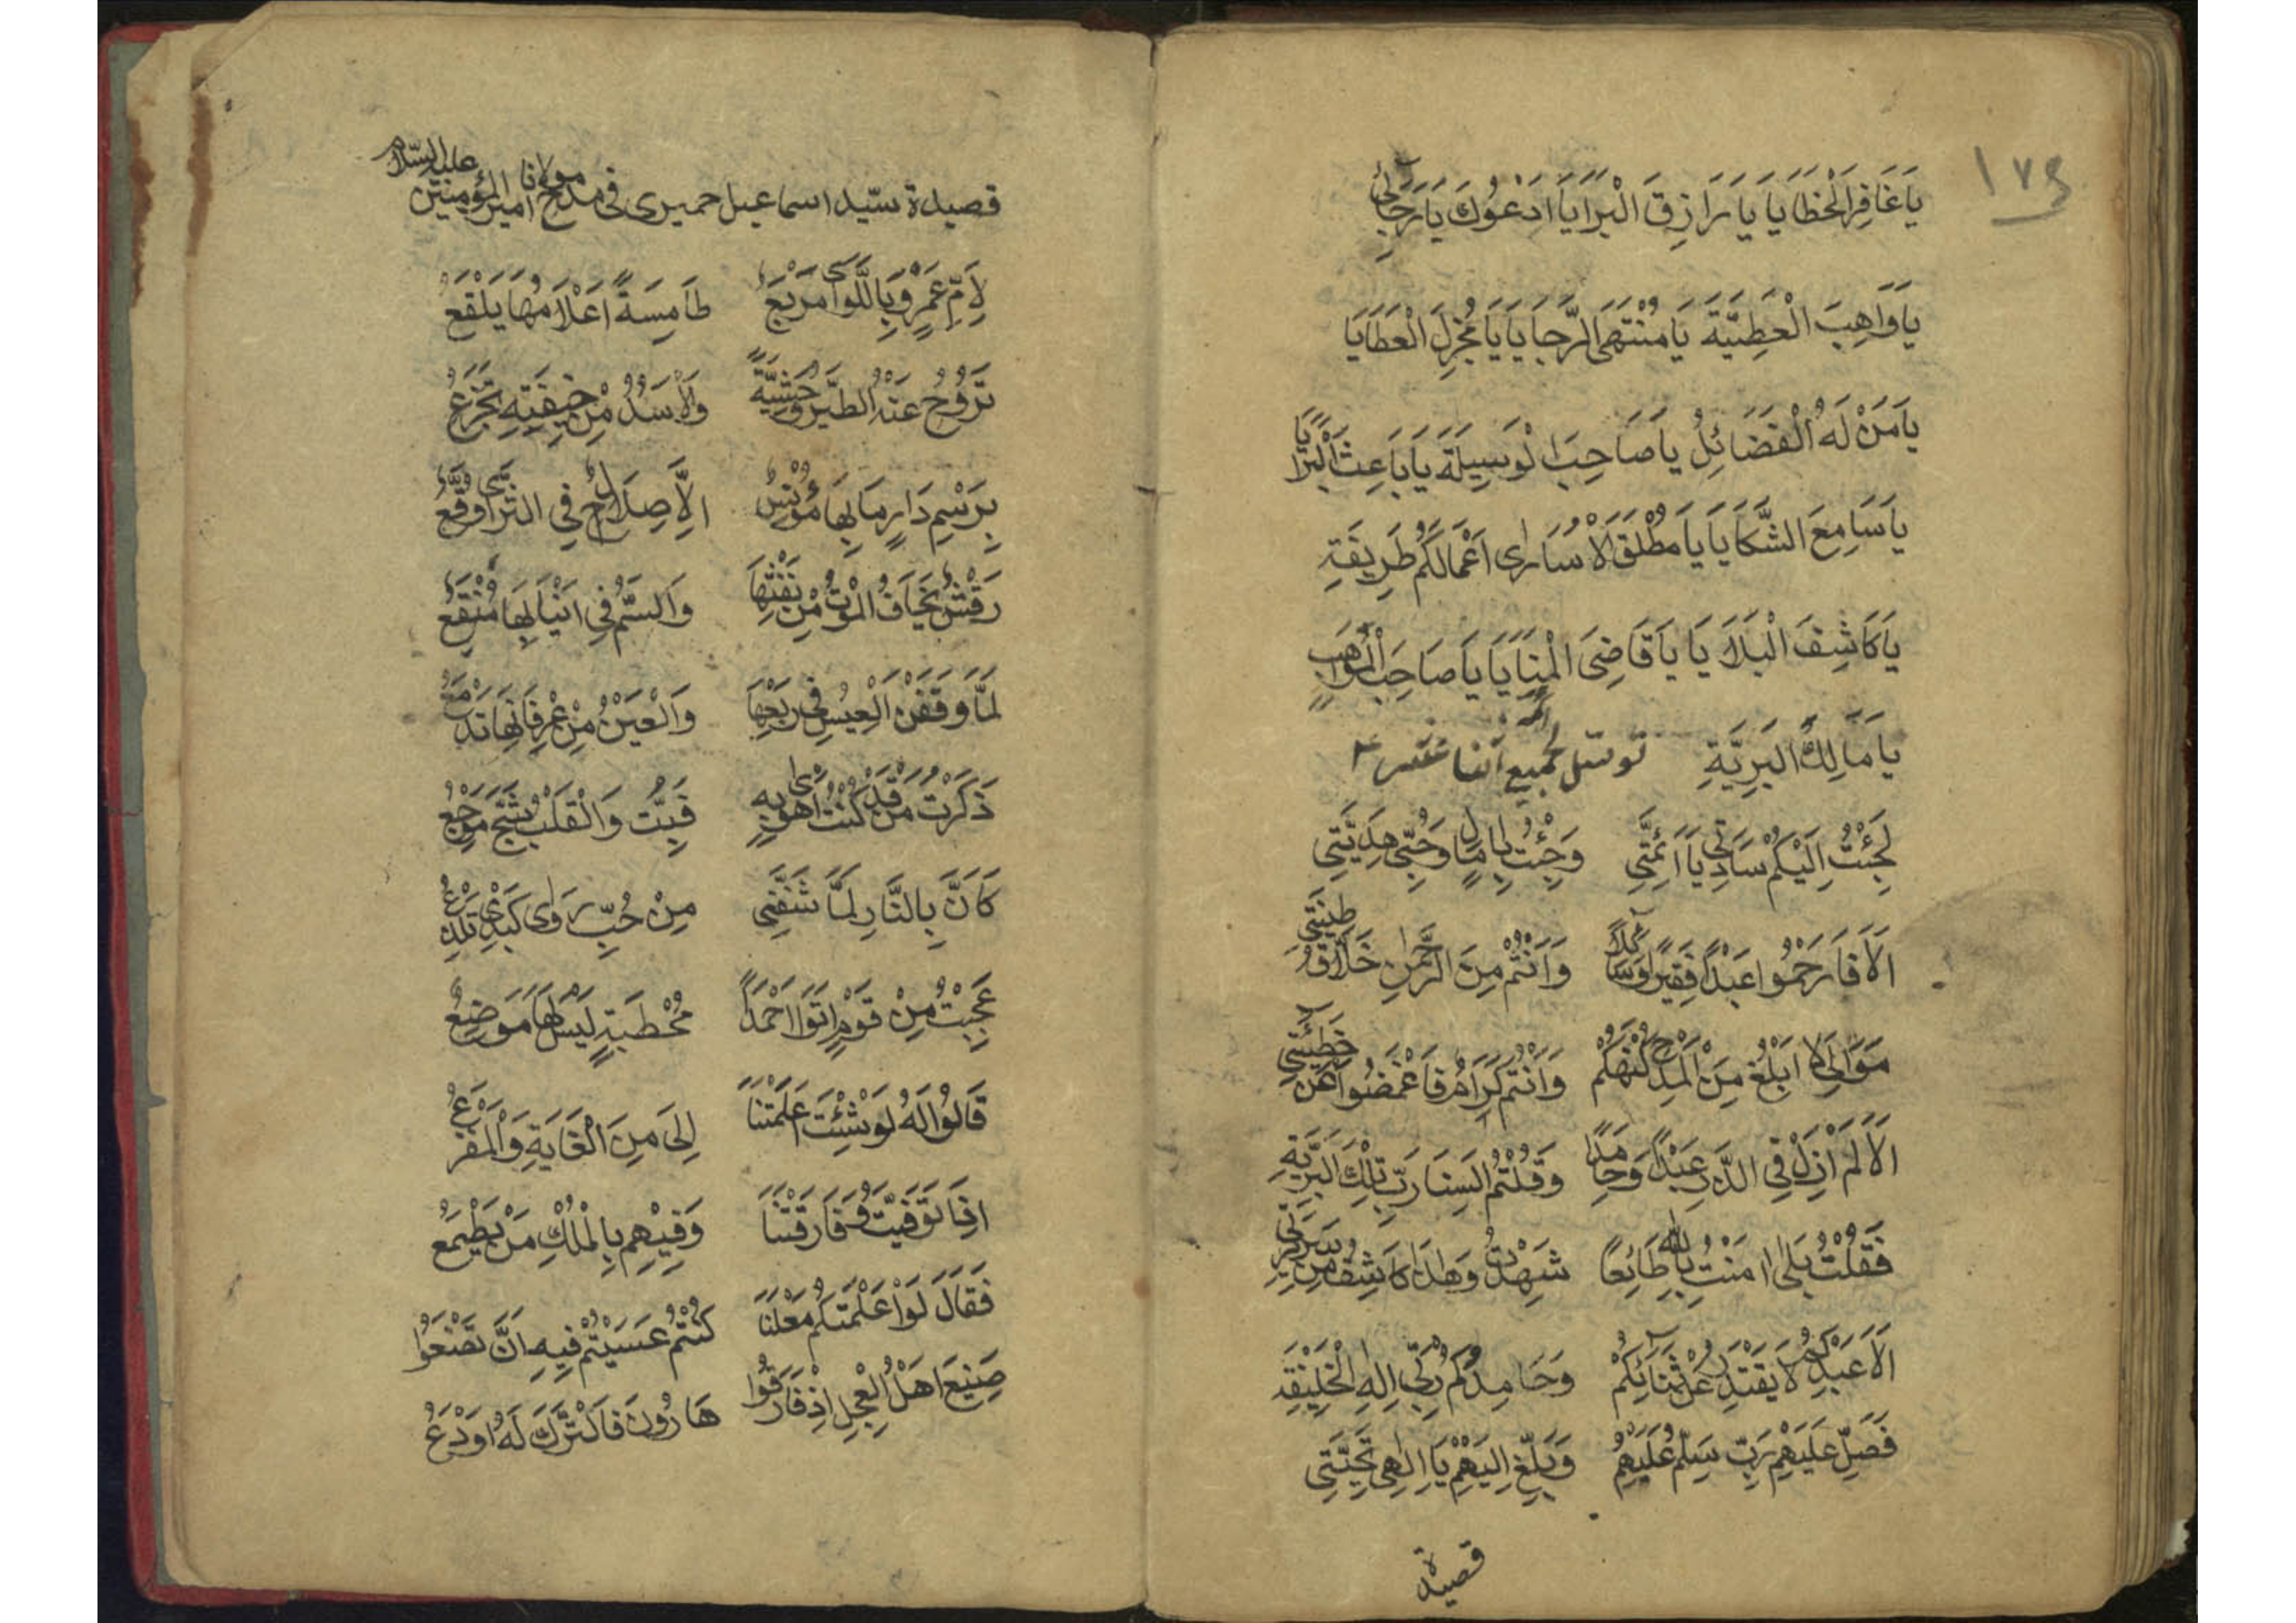 ١٧٤
يَا غَافِرَ الْخَطَايَا يَا رَازِقَ الْبَرَايَا اَدْعُوكَ يَا رَجَائِي
يَا وَاهِبَ الْعَطِيَّةَ يَا مُنْتَهَى الرَّجَايَا يَا مُجْزِلَ الْعَطَايَا
يَا مَنْ لَهُ الْفَضَائِلُ يَا صَاحِبَ الْوَسِيلَةَ يَا بَاعِثَ الْبَرَايَا
يَا سَامِعَ الشَّكَايَا يَا مُطْلَقَ الْاُسَارٰى اَعْمَالَكُم طَرِيقَةِ
يَا كَاشِفَ الْبَلَايَا يَا قَاضِىَ الْمَنَايَا يَا صَاحِبَ الْمَوَاهِبِ
يَا مَالِكَ الْبَرِيَّةِ توسّل بجميع ائمّهٔ اثنا عشر ع
لَجِئْتُ اِلَيْكُمْ سَادَتِي يَا اَئِمَّتِي وَجِئْتُ بِاٰمَالٍ وَحُبِّي هَدِيَّتِي
اَلَا فَارْحَمُوا عَبْدًا فَقِيرًا وَسَآئِلًا وَاَنْتُمْ مِنَ الرَّحْمٰنِ خَلَّاقُ طِينَتِي
مَوَالِىَ لَا اَبْلُغْ مِنَ الْمَدْحِ كُنْهَكُمْ وَاَنْتُمْ كِرَامُ فَاغْمَضُوا عَنْ خَطِيئَتِي
اَلَا لَمْ اَزَلْ فِي الذَّرِ عَبْدًا وَحَامِدًا وَقُلْتُمْ اَلَسْنَا رَبّ تِلْكَ الْبَرِيَّةِ
فَقُلْتُ بَلٰى اٰمَنْتُ بِاللهِ طَائِعًا شَهِدْتُ وَهٰذَا كَاشِفُ مِنْ سَرِيرَتِي
اَلَا عَبْدُكُمْ لَا يَقْتَدِرْ عَنْ ثَنَآئِكُمْ وَحَامِدُكُم رَبِّي اِلٰهِ الْخَلِيْقَةِ
فَصَلِّ عَلَيْهِمْ رَبِّ سَلِّمْ عَلَيْهِمُ وَبَلِّغْ اِلَيْهِمْ يَا اِلٰهِي تَحِيَّتِي
قصيدة
قصيدة سيّد اسماعيل حميرى فى مدح مولانا امير المؤمنين عليه السّلام
لِاُمِّ عَمْرٍو بِاللَّوٰى مَرْبَعُ طَامِسَةً اَعْلَامُهَا بَلْقَعُ
تَرُوحُ عَنْهُ الطَّيْرُ وَحْشِيَّةً وَالْاُسْدُ مِنْ خِيفَتِهِ تَجْزَعُ
بِرَسْمِ دَارٍ مَا بِهَا مُؤْنِسُ اِلَّا صِلَالٌ فِي الثَّرٰى وُقَّعُ
رَقْشُ يَخَافُ الْمَوْتُ مِنْ نَفْثِهَا وَالسَّمُّ فِي اَنْيَابِهَا مُنْقَعُ
لَمَّا وَقَفْنَ الْعِيسُ فِي رَبْعِهَا وَالْعَيْنُ مِنْ عِرْفَانِهَا تَدْمَعُ
ذَكَرْتُ مَنْ قَدْ كُنْتُ اَهْوٰى بِهِ فَبِتُّ وَالْقَلْبُ شَجٍ مَوْجَعُ
كَاَنَّ بِالنَّارِ لَمَّا شَفَّنِي مِنْ حُبِّ رَوٰى كَبَدِي تَلْذَعُ
عَجِبْتُ مِنْ قَوْمٍ اَتَوْا اَحْمَدًا بِخُطْبَةٍ لَيْسَ لَهَا مَوْضِعُ
قَالُوا لَهُ لَوْ شِئْتَ عَلَّمْتَنَا اِلَى مَنِ الْغَايَةِ وَالْمَفْزَعُ
اِذَا تَوَفَّيْتَ وَفَارَقْتَنَا وَفِيْهِمِ بِالْمُلْكِ مَنْ يَطْمَعُ
فَقَالَ لَوْ اَعْلَمْتَكُم مَعْلَنًا كُنْتُمْ عَسَيْتُمْ فِيهِ اَنْ تَصْنَعُوا
صَنِيْعَ اَهْلُ الْعِجْلِ اِذْ فَارَقُوا هَارُونَ فَالتَّرْكُ لَهُ اَوْدَعُ